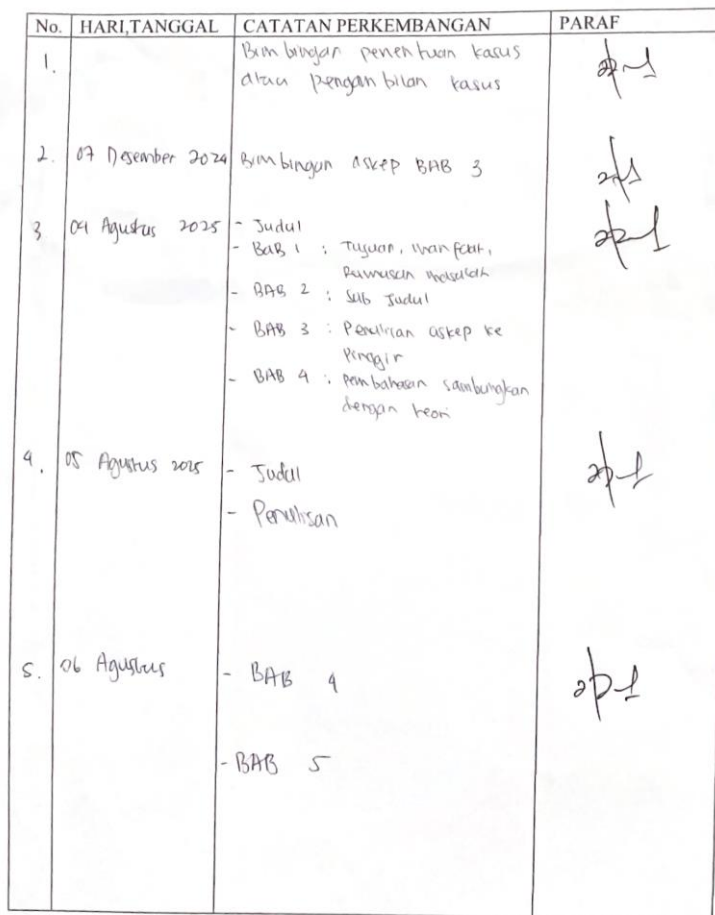 No. HARI,TANGGAL CATATAN PERKEMBANGAN PARAF
1. Bimbingan penentuan kasus
atau pengambilan kasus
2. 07 Desember 2024 Bimbingan askep BAB 3
3 04 Agustus 2025 - Judul
- BAB 1 : Tujuan, manfaat,
Rumusan masalah
- BAB 2 : Sub Judul
- BAB 3 : Penulisan askep ke
Pinggir
- BAB 4 : pembahasan sambungkan
dengan teori
4. 05 Agustus 2025 - Judul
- Penulisan
5. 06 Agustus - BAB 4
- BAB 5